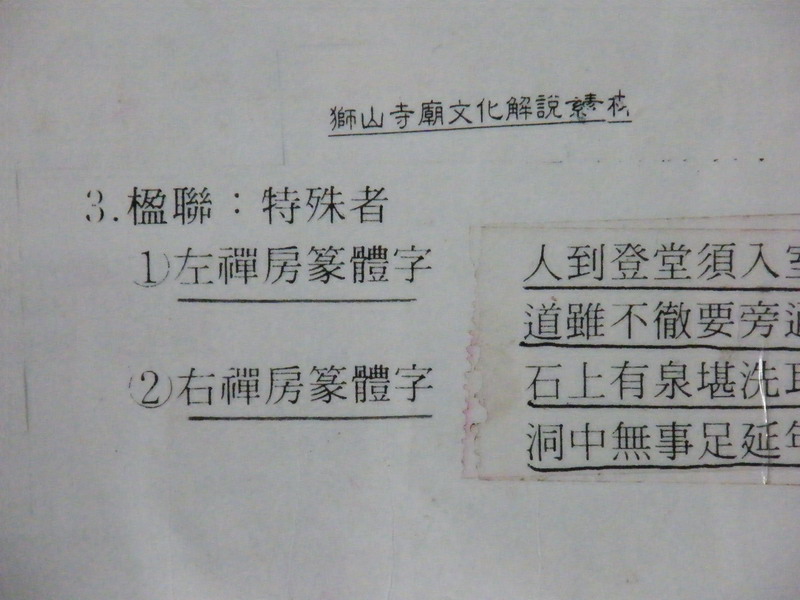 獅山寺廟文化解說
3.楹聯：特殊者
1)左禪房篆體字
人到登堂須入室
道雖不徹要旁通
(2)右禪房篆體字
石上有泉堪洗
洞中無事足延年